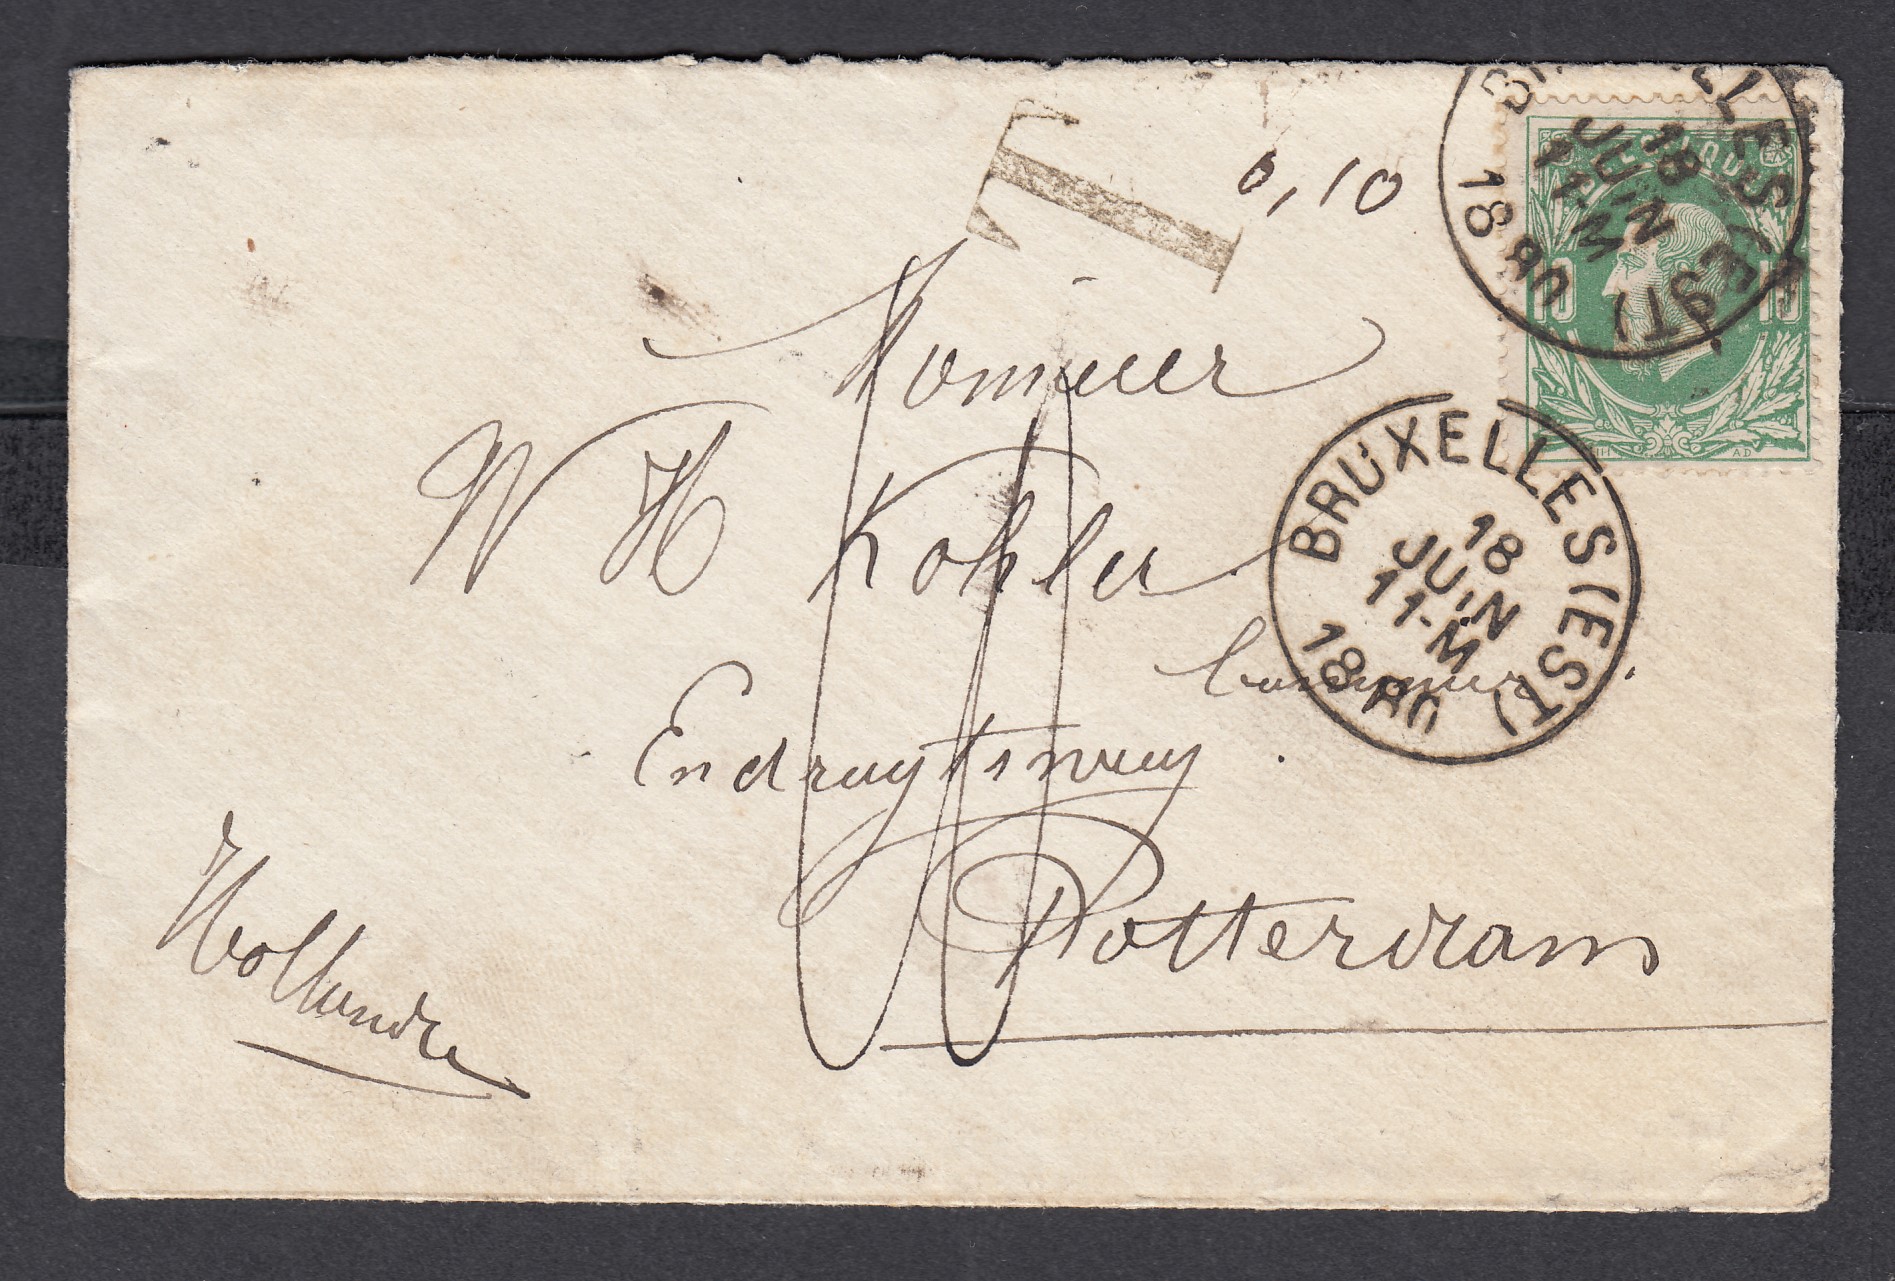 T
0,10
BRUXELLES (EST)
18
JUIN
11-M
1880
10 10
Monsieur
W H Kohler
BRUXELLES (EST)
18
JUIN
11-M
1880
Rotterdam
Hollande